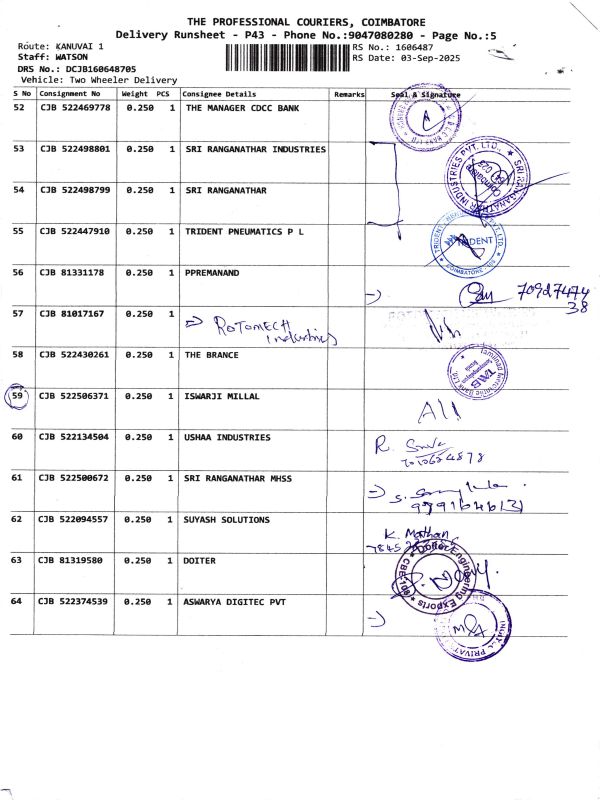 THE PROFESSIONAL COURIERS, COIMBATORE
Delivery Runsheet - P43 - Phone No.:9047080280 - Page No.:5
Route: KANUVAI 1
Staff: WATSON
DRS No.: DCJB160648705
Vehicle: Two Wheeler Delivery
RS No.: 1606487
RS Date: 03-Sep-2025
S No Consignment No Weight PCS Consignee Details Remarks Seal & Signature
52 CJB 522469778 0.250 1 THE MANAGER CDCC BANK
53 CJB 522498801 0.250 1 SRI RANGANATHAR INDUSTRIES
SRI RANGANATHAR INDUSTRIES PVT. LTD.,
54 CJB 522498799 0.250 1 SRI RANGANATHAR
55 CJB 522447910 0.250 1 TRIDENT PNEUMATICS P L
TRIDENT
56 CJB 81331178 0.250 1 PPREMANAND
70927474
38
57 CJB 81017167 0.250 1
ROTOMECH
Industries
58 CJB 522430261 0.250 1 THE BRANCE
TAB
59 CJB 522506371 0.250 1 ISWARJI MILLAL
60 CJB 522134504 0.250 1 USHAA INDUSTRIES
61 CJB 522500672 0.250 1 SRI RANGANATHAR MHSS
62 CJB 522094557 0.250 1 SUYASH SOLUTIONS
K. Mathan
63 CJB 81319580 0.250 1 DOITER
Doiter Engineering Exports
64 CJB 522374539 0.250 1 ASWARYA DIGITEC PVT